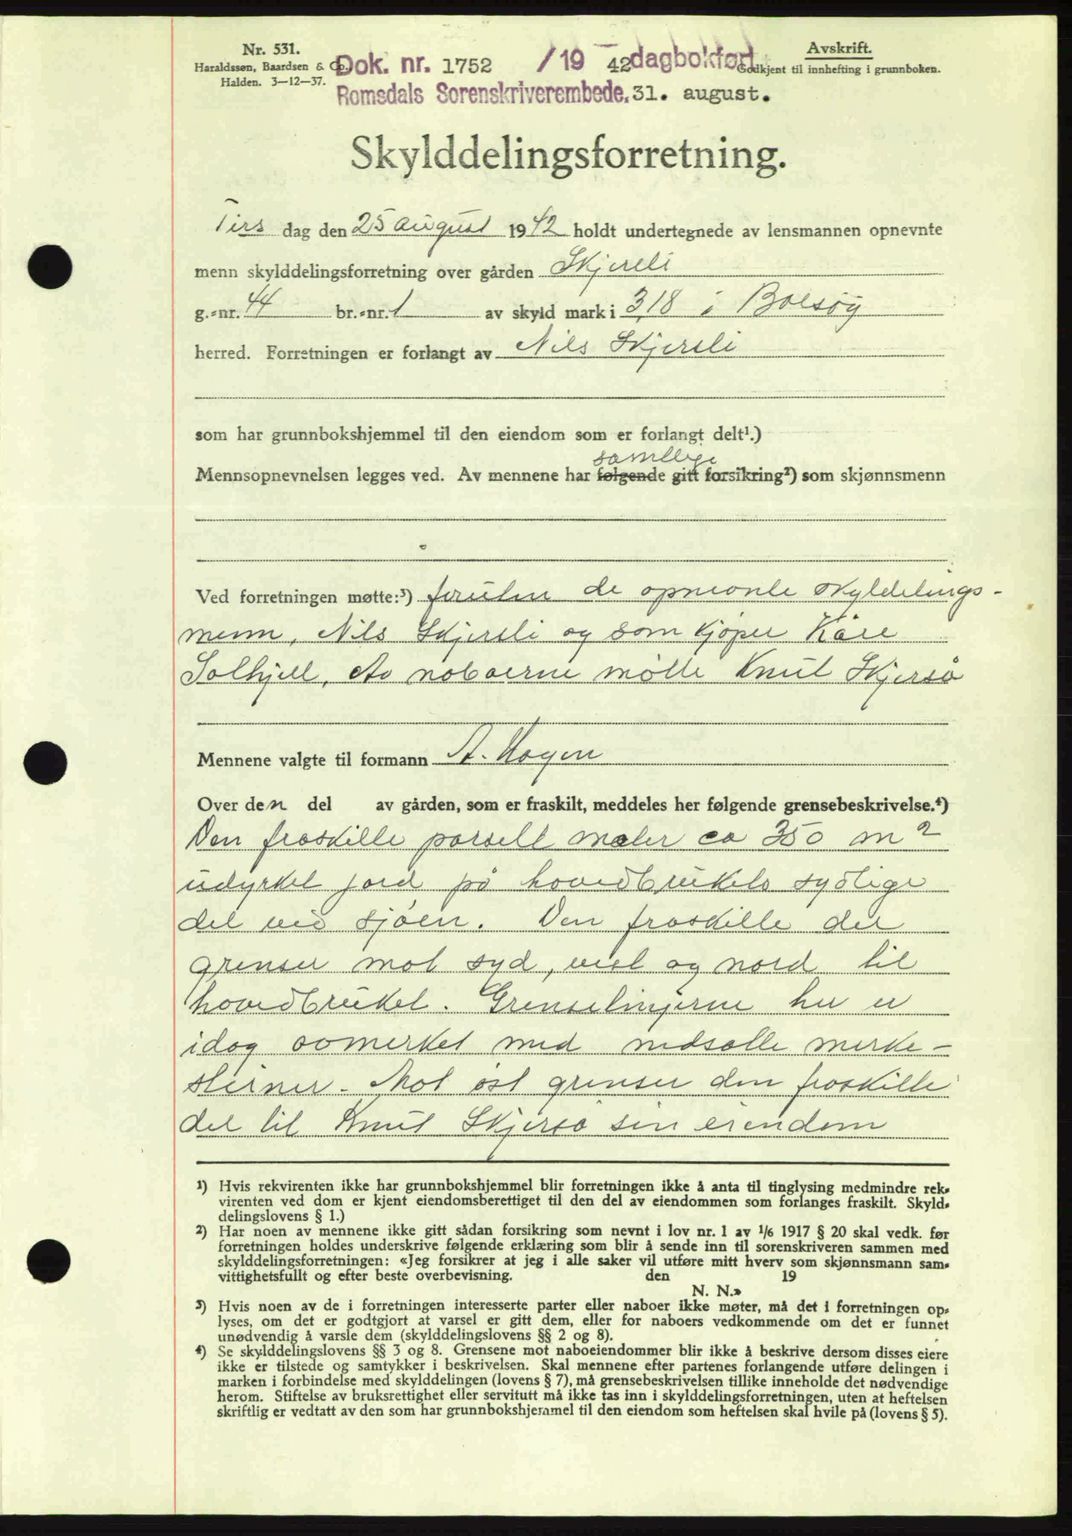 Nr. 531.
Haraldssøn, Baardsen & Co.
Halden. 3—12—37.
Dok. nr. 1752 /19 42 dagbokført
Romsdals Sorenskriverembede, 31. august.
Avskrift.
Godkjent til innhefting i grunnboken.
Skylddelingsforretning.
Tirs dag den 25 august 1942 holdt undertegnede av lensmannen opnevnte
menn skylddelingsforretning over gården Skjereli
g.-nr. 44 br.-nr. 1 av skyld mark i 3,18 i Bolsøy
herred. Forretningen er forlangt av Nils Skjersli
som har grunnbokshjemmel til den eiendom som er forlangt delt¹.)
samtlige
Mennsopnevnelsen legges ved. Av mennene har følgende gitt forsikring²) som skjønnsmenn
Ved forretningen møtte:³) foruten de opnevnte skyldelings-
menn, Nils Skjersli og som kjøper Kåre
Solhjell, Av naboerne møtte Knut Skjerså
Mennene valgte til formann A. Hagen
Over den del av gården, som er fraskilt, meddeles her følgende grensebeskrivelse.⁴)
Den fraskilte parsell måler ca 350 m²
udyrket jord på hovedbrukets sydlige
del ved sjøen. Den fraskilte del
grenser mot syd, vest og nord til
hovedbruket. Grenselinjerne her er
idag avmerket med nedsatte merke-
steiner. Mot øst grenser den fraskilte
del til Knut Skjerså sin eiendom
¹) Hvis rekvirenten ikke har grunnbokshjemmel blir forretningen ikke å anta til tinglysing medmindre rek-
virenten ved dom er kjent eiendomsberettiget til den del av eiendommen som forlanges fraskilt. Skyld-
delingslovens § 1.)
²) Har noen av mennene ikke gitt sådan forsikring som nevnt i lov nr. 1 av 1/6 1917 § 20 skal vedk. før
forretningen holdes underskrive følgende erklæring som blir å sende inn til sorenskriveren sammen med
skylddelingsforretningen: «Jeg forsikrer at jeg i alle saker vil utføre mitt hverv som skjønnsmann sam-
vittighetsfullt og efter beste overbevisning. den 19
N. N.»
³) Hvis noen av de i forretningen interesserte parter eller naboer ikke møter, må det i forretningen op-
lyses, om det er godtgjort at varsel er gitt dem, eller for naboers vedkommende om det er funnet
unødvendig å varsle dem (skylddelingslovens §§ 2 og 8).
⁴) Se skylddelingslovens §§ 3 og 8. Grensene mot naboeiendommer blir ikke å beskrive dersom disses eiere
ikke er tilstede og samtykker i beskrivelsen. Skal mennene efter partenes forlangende utføre delingen i
marken i forbindelse med skylddelingen (lovens § 7), må grensebeskrivelsen tillike inneholde det nødvendige
herom. Stiftelse av bruksrettighet eller servitutt må ikke tas inn i skylddelingsforretningen, uten at heftelsen
skriftlig er vedtatt av den som har grunnbokshjemmel til den eiendom som heftelsen skal hvile på (lovens § 5).